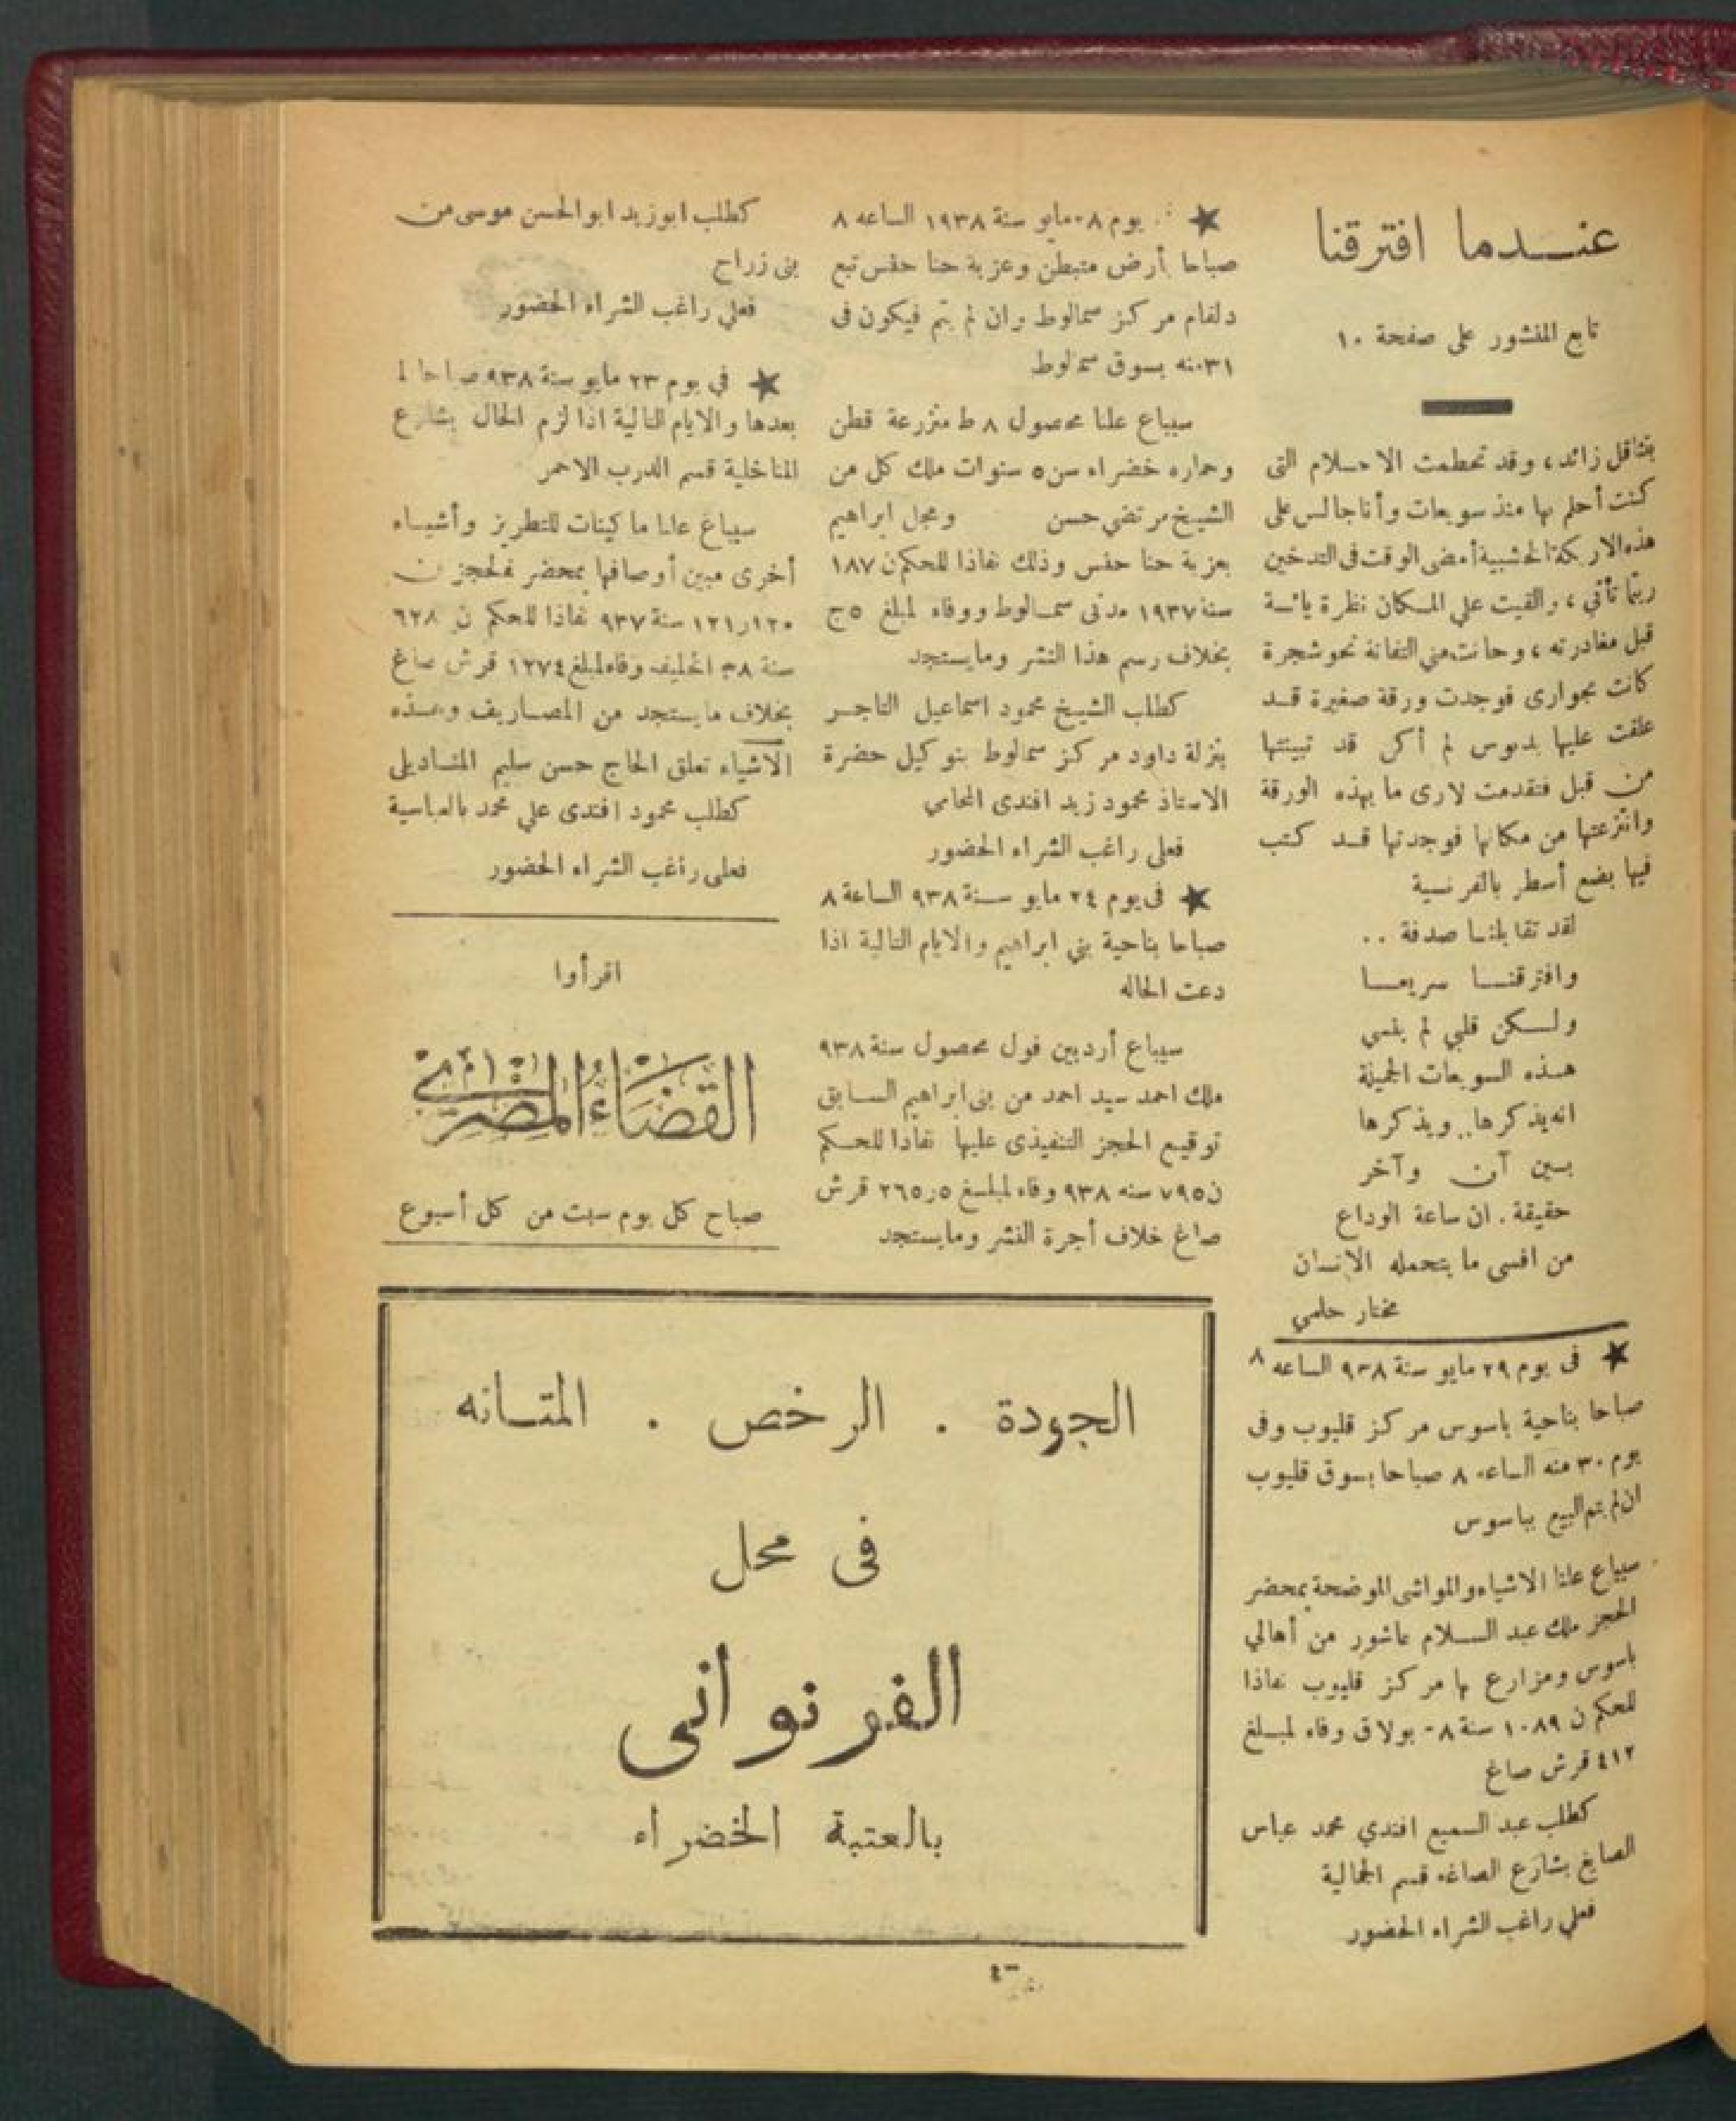 عنـــدما افترقنا
تابع المنشور على صفحة ١٠
بتثاقل زائد، وقد تحطمت الاحــلام التى
كنت أحلم بها منذ سويعات وأنا جالس على
هذه الاريكة الخشبية أمضى الوقت فى التدخين
ريثما تأتي، والقيت علي المـكان نظرة يائسة
قبل مغادرته، وحانت مني التفاتة نحو شجرة
كانت بجوارى فوجدت ورقة صغيرة قــد
علقت عليها بدبوس لم أكن قد تبينتها
من قبل فتقدمت لارى ما بهذه الورقة
وانتزعتها من مكانها فوجدتها قــد كتب
فيها بضع أسطر بالفرنسية
لقد تقابلنــا صدفة ..
وافترقنــــا سريعــــا
ولــكن قلبي لم ينسى
هــذه السويعات الجميلة
انه يذكرها.. ويذكرها
بــين آن وآخر
حقيقة . ان ساعة الوداع
من اقسى ما يتحمله الإنسان
مختار حلمي
★ فى يوم ٢٩ مايو سنة ٩٣٨ الساعه ٨
صباحا بناحية باسوس مركز قليوب وفى
يوم ٣٠ منه الساعه ٨ صباحا بسوق قليوب
ان لم يتم البيع بباسوس
سيباع علنا الاشياء والمواشى الموضحة بمحضر
الحجز ملك عبد الســلام عاشور من أهالي
باسوس ومزارع بها مركز قليوب نفاذا
للحكم ن ١٠٨٩ سنة ٣٨ بولاق وفاء لمبــلغ
٤١٢ قرش صاغ
كطلب عبد السميع افندي محمد عباس
الصايغ بشارع الصاغه قسم الجمالية
فعلي راغب الشراء الحضور
★ يوم مايو سنة ١٩٣٨ الساعه ٨
صباحا بأرض متبطن وعزبة حنا حفس تبع
دلقام مركز سمالوط وان لم يتم فيكون فى
٣١ منه بسوق سمالوط
سيباع علنا محصول ٨ ط منزرعة قطن
وحماره خضراء سن ٥ سنوات ملك كل من
الشيخ مرتضي حسن ومجل ابراهيم
بعزبة حنا حفس وذلك نفاذا للحكم ن ١٨٧
سنة ١٩٣٧ مدنى سمــالوط ووفاء لمبلغ ٥ ج
بخلاف رسم هذا النشر وما يستجد
كطلب الشيخ محمود اسماعيل التاجــر
بنزلة داود مركز سمالوط بتوكيل حضرة
الاستاذ محمود زيد افندى المحامي
فعلى راغب الشراء الحضور
★ فى يوم ٢٤ مايو ســنة ٩٣٨ الساعة ٨
صباحا بناحية بني ابراهيم والايام التالية اذا
دعت الحاله
سيباع أردبين فول محصول سنة ٩٣٨
ملك احمد سيد احمد من بنى ابراهيم الســابق
توقيع الحجز التنفيذى عليها نفاذا للحــكم
ن ٧٩٥ سنه ٩٣٨ وفاء لمبلــغ ٢٦٥ر٥ قرش
صاغ خلاف أجرة النشر وما يستجد
كطلب ابوزيد ابو الحسن موسى من
بنى زراح
فعلي راغب الشراء الحضور
★ فى يوم ٢٣ مايو سنة ٩٣٨ صباحا لما
بعدها والايام التالية اذا لزم الحال بشارع
المناخلية قسم الدرب الاحمر
سيباع علنا ماكينات للتطريز وأشيــاء
أخرى مبين أوصافها بمحضر الحجز ن
١٢٠ر١٢١ سنة ٩٣٧ نفاذا للحكم ن ٦٢٨
سنة ٣٨ الخليفه وفاء لمبلغ ١٢٧٤ قرش صاغ
بخلاف ما يستجد من المصــاريف وهــذه
الأشياء تعلق الحاج حسن سليم المنــاديلى
كطلب محمود افندى علي محمد بالعباسية
فعلى راغب الشراء الحضور
اقرأوا
القضاء المصري
صباح كل يوم سبت من كل أسبوع
الجودة . الرخص . المتــانه
فى محل
الفرنوانى
بالعتبة الخضراء